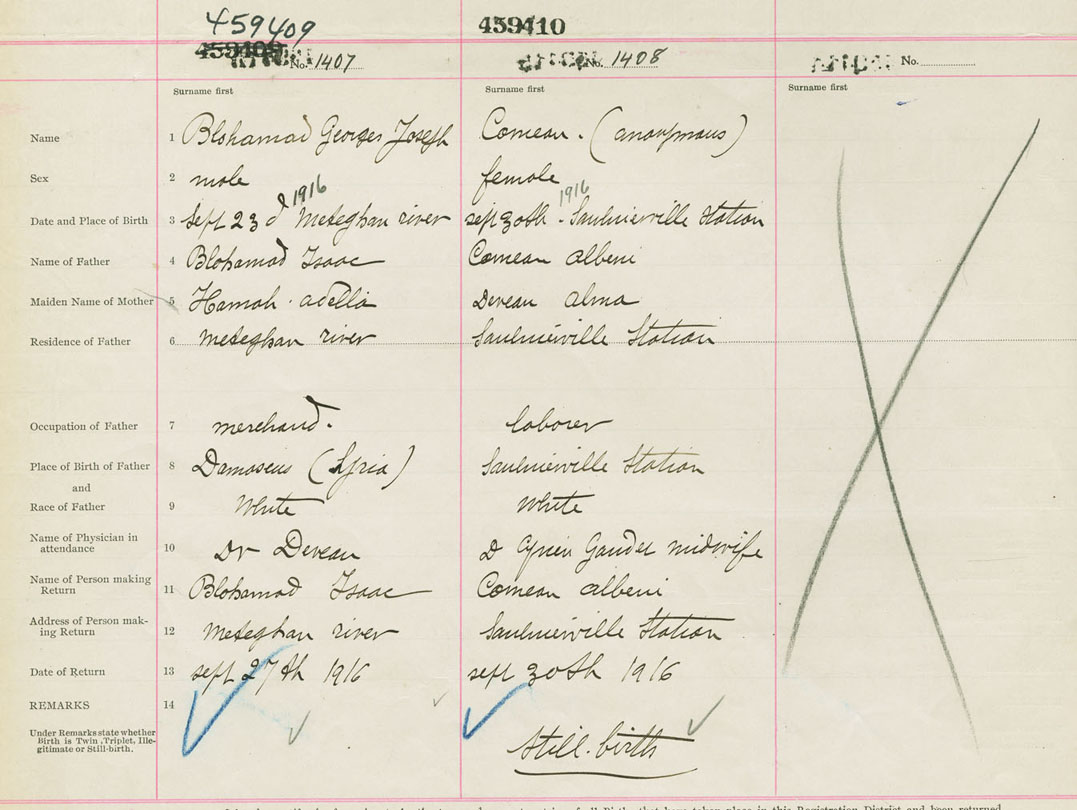 459409
459409
459410
No. 1407
No. 1408
No.
Surname first
Surname first
Surname first
Name
1
Blohamad Georges Joseph
Comeau. (anonymous)
Sex
2
male
female
Date and Place of Birth
3
Sept 23 d 1916 Meteghan river
sept 30th. 1916 Saulnierville Station
Name of Father
4
Blohamad Isaac
Comeau albeni
Maiden Name of Mother
5
Hamah. adella
Deveau alma
Residence of Father
6
Meteghan river
Saulnierville Station
Occupation of Father
7
merchand.
laborer
Place of Birth of Father
8
Damascus (Syria)
Saulnierville Station
and
Race of Father
9
White
White
Name of Physician in
attendance
10
Dr Deveau
Gaudet midwife
Name of Person making
Return
11
Blohamad Isaac
Comeau albeni
Address of Person mak-
ing Return
12
Meteghan river
Saulnierville Station
Date of Return
13
sept 27th 1916
sept 30th 1916
REMARKS
14
Under Remarks state whether
Birth is Twin, Triplet, Ille-
gitimate or Still-birth.
Still.birth
of all Birth that have taken place in this Registration District and been returned